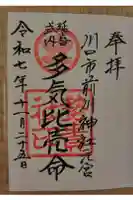 奉拝
川口市前川神社兼宮
延喜式内
多気比売命
令和七年十月二十五日